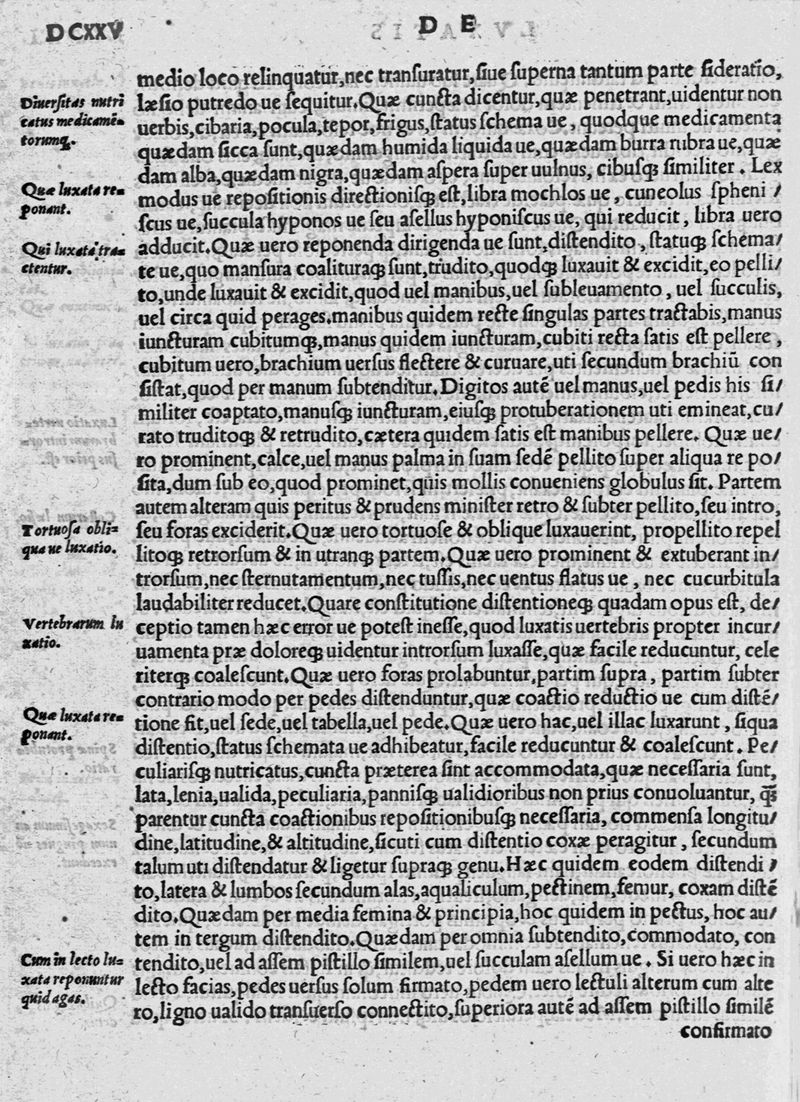 DCXXV
D E
medio loco relinquatur,nec tranſuratur,ſiue ſuperna tantum parte ſideratio,
Diuerſitas nutri
læſio putredo ue ſequitur.Quæ cuncta dicentur,quæ penetrant,uidentur non
catus medicamē-
uerbis,cibaria,pocula,tepor,frigus,ſtatus ſchema ue, quodque medicamenta
torumq́;.
quædam ſicca ſunt,quædam humida liquida ue,quædam burra rubra ue,quæ
dam alba,quædam nigra,quædam aſpera ſuper uulnus, cibuſq́; ſimiliter. Lex
Quæ luxata re-
modus ue repoſitionis directioniſq́; eſt,libra mochlos ue, cuneolus ſpheni/
ponant.
ſcus ue,ſuccula hyponos ue ſeu aſellus hyponiſcus ue, qui reducit, libra uero
Qui luxata tra-
adducit.Quæ uero reponenda dirigenda ue ſunt,diſtendito, ſtatuq́; ſchema/
ctentur.
te ue,quo manſura coalituraq́; ſunt,trudito,quodq́; luxauit & excidit,eo pelli/
to,unde luxauit & excidit,quod uel manibus,uel ſubleuamento, uel ſucculis,
uel circa quid perages.manibus quidem recte ſingulas partes tractabis,manus
iuncturam cubitumq́;,manus quidem iuncturam,cubiti recta ſatis eſt pellere,
cubitum uero,brachium uerſus flectere & curuare,uti ſecundum brachiū con
ſiſtat,quod per manum ſubtenditur.Digitos autē uel manus,uel pedis his ſi/
militer coaptato,manuſq́; iuncturam,eiuſq́; protuberationem uti emineat,cu/
rato truditoq́; & retrudito,cætera quidem ſatis eſt manibus pellere. Quæ ue/
ro prominent,calce,uel manus palma in ſuam ſedē pellito ſuper aliqua re po/
ſita,dum ſub eo,quod prominet,quis mollis conueniens globulus ſit. Partem
autem alteram quis peritus & prudens miniſter retro & ſubter pellito,ſeu intro,
Tortuoſa obli-
ſeu foras exciderit.Quæ uero tortuoſe & oblique luxauerint, propellito repel
qua ue luxatio.
litoq́; retrorſum & in utranq́; partem.Quæ uero prominent & extuberant in/
trorſum,nec ſternutamentum,nec tuſſis,nec uentus flatus ue, nec cucurbitula
laudabiliter reducet.Quare conſtitutione diſtentioneq́; quadam opus eſt, de/
Vertebrarum lu
ceptio tamen hæc error ue poteſt ineſſe,quod luxatis uertebris propter incur/
xatio.
uamenta præ doloreq́; uidentur introrſum luxaſſe,quæ facile reducuntur, cele
riterq́; coaleſcunt.Quæ uero foras prolabuntur,partim ſupra, partim ſubter
contrario modo per pedes diſtenduntur,quæ coactio reductio ue cum diſtē/
Quæ luxata re-
tione fit,uel ſede,uel tabella,uel pede.Quæ uero hac,uel illac luxarunt, ſiqua
ponant.
diſtentio,ſtatus ſchemata ue adhibeatur,facile reducuntur & coaleſcunt. Pe/
culiariſq́; nutricatus,cuncta præterea ſint accommodata,quæ neceſſaria ſunt,
lata,lenia,ualida,peculiaria,panniſq́; ualidioribus non prius conuoluantur, q̃ȝ
parentur cuncta coactionibus repoſitionibuſq́; neceſſaria, commenſa longitu/
dine,latitudine,& altitudine,ſicuti cum diſtentio coxæ peragitur, ſecundum
talum uti diſtendatur & ligetur ſupraq́; genu.Hæc quidem eodem diſtendi/
to,latera & lumbos ſecundum alas,aqualiculum,pectinem,femur, coxam diſtē
dito.Quædam per media femina & principia,hoc quidem in pectus, hoc au/
tem in tergum diſtendito.Quædam per omnia ſubtendito,commodato, con
Cum in lecto lu-
tendito,uel ad aſſem piſtillo ſimilem,uel ſucculam aſellum ue. Si uero hæc in
xata reponuntur
lecto facias,pedes uerſus ſolum firmato,pedem uero lectuli alterum cum alte
quid agas.
ro,ligno ualido tranſuerſo connectito,ſuperiora autē ad aſſem piſtillo ſimilē
confirmato